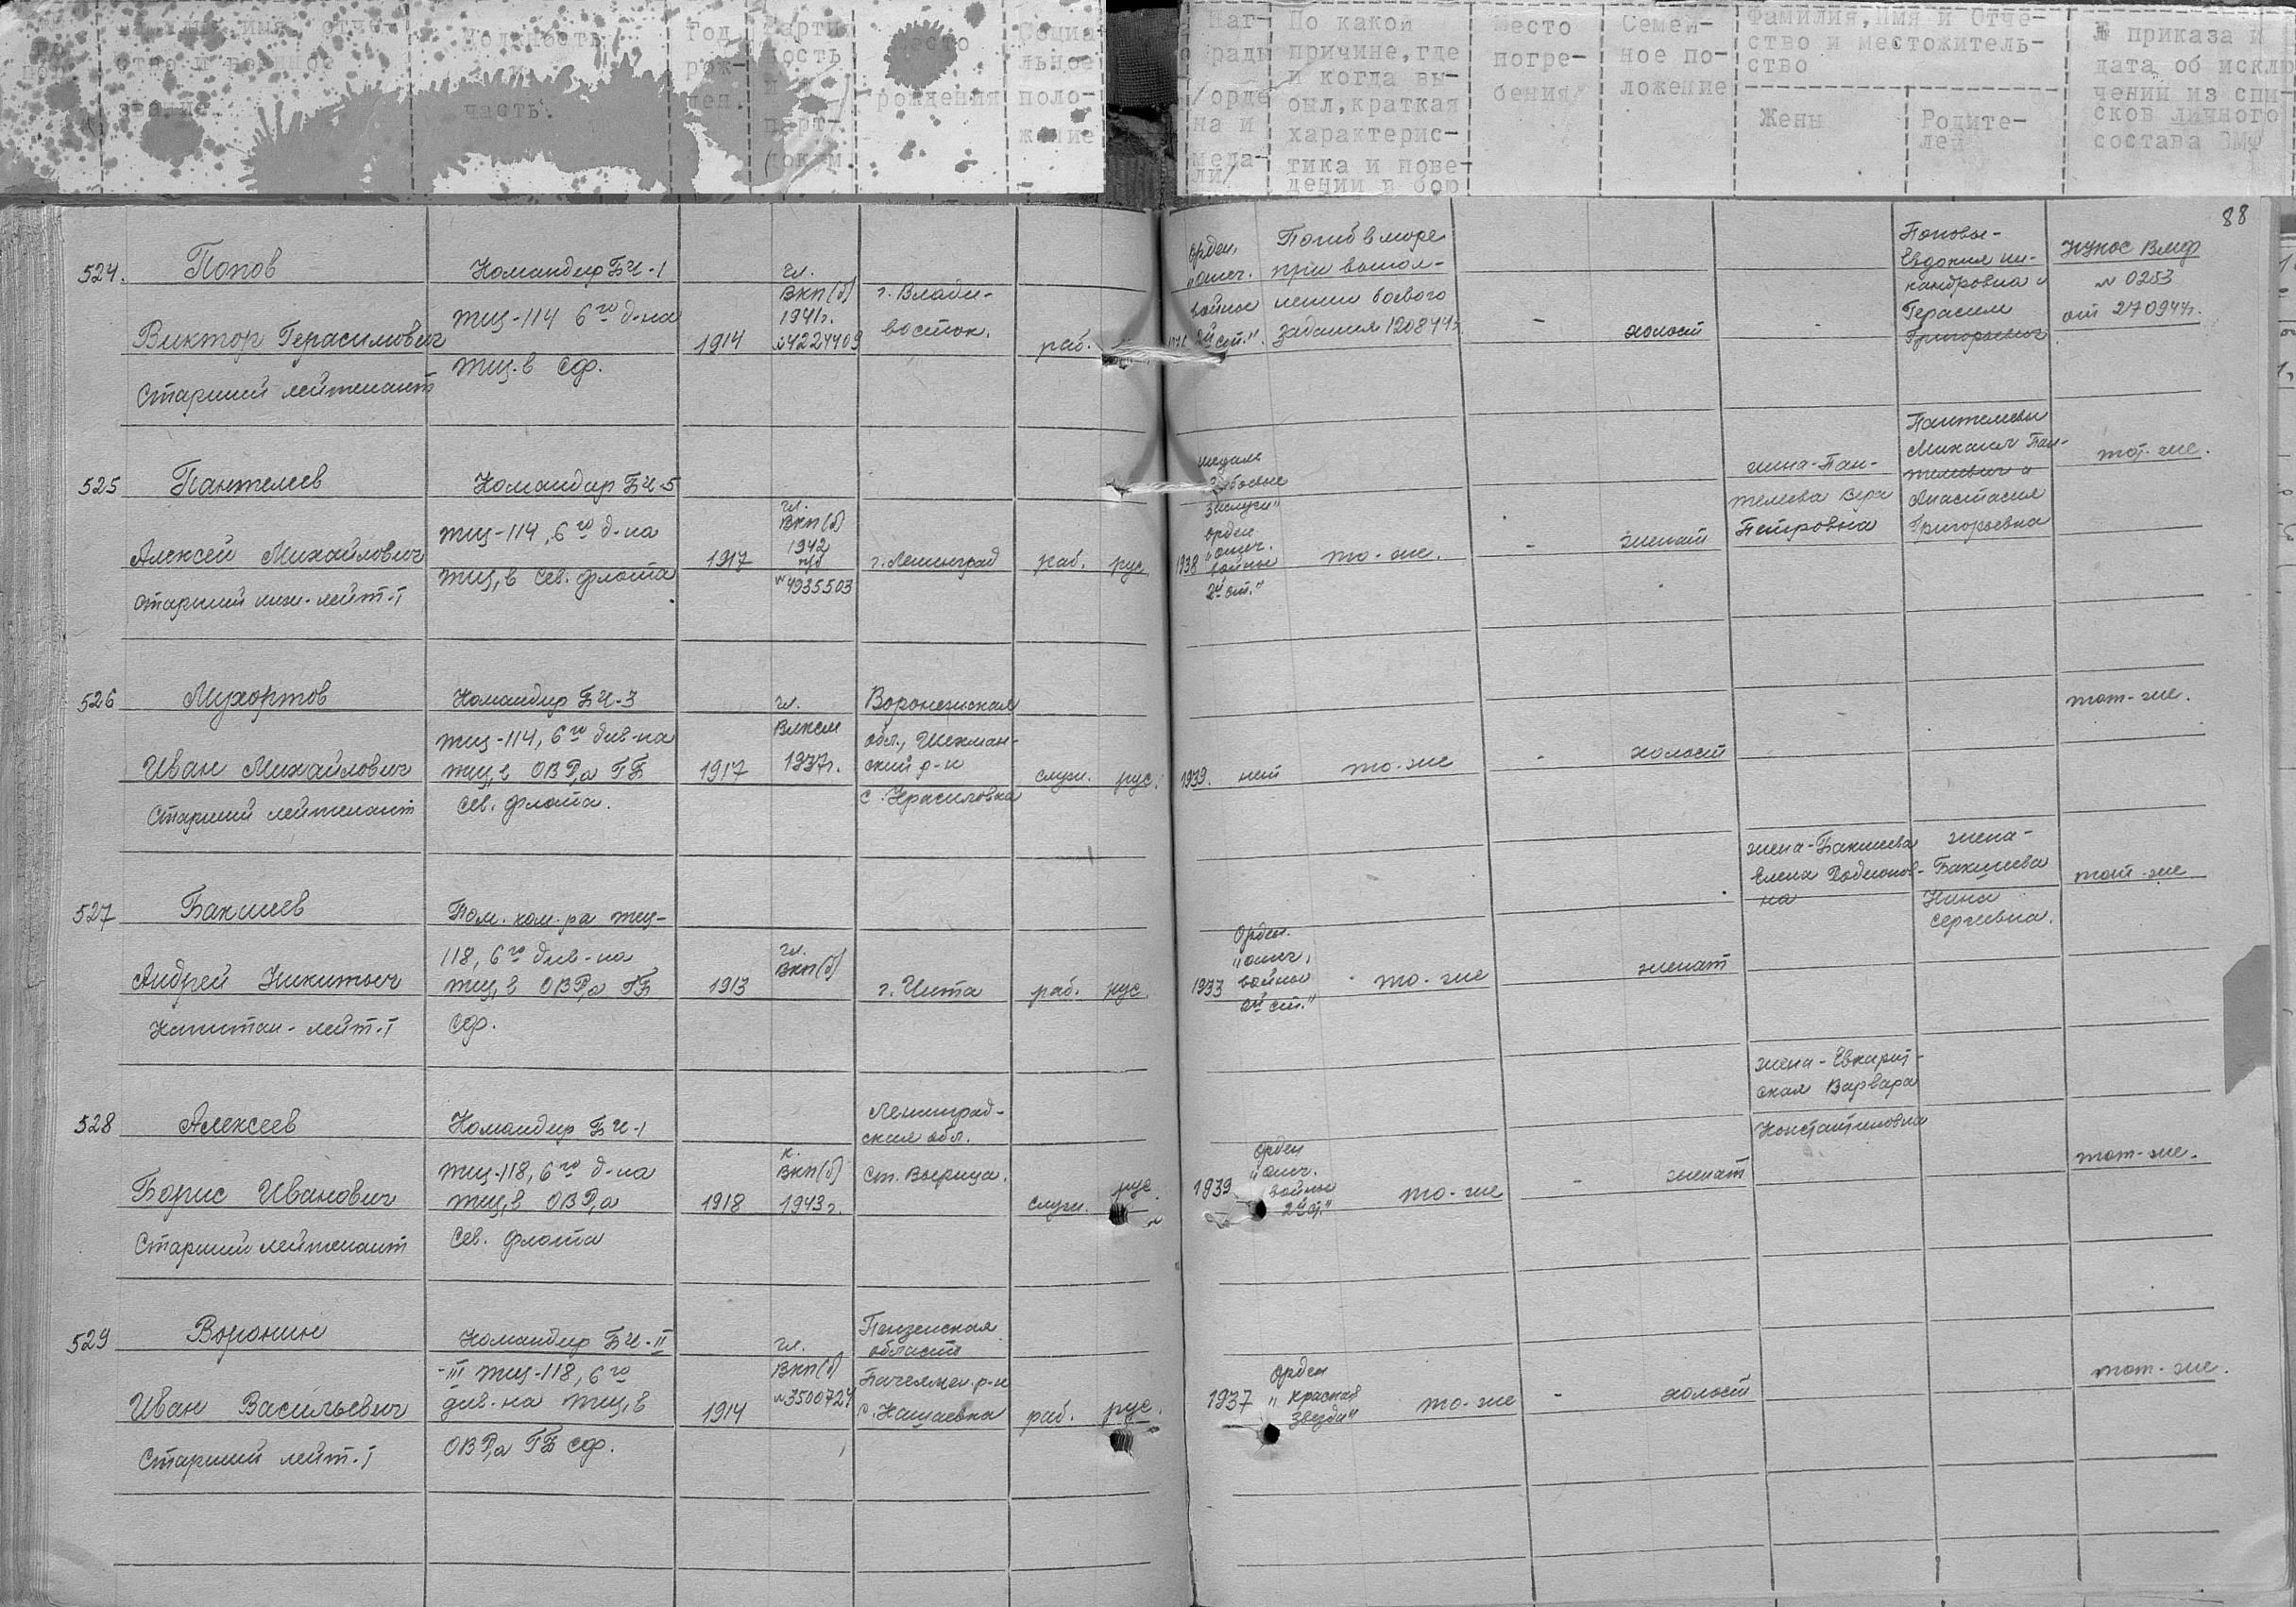 Фамилия, имя, отче-
ство и военное
звание
Должность
и
часть.
Год
рож-
ден.
Парти
ность
и №
парт-
докум
Место
рождения
Социа-
льное
поло-
жение
Наг-
рады
/орде
на и
меда-
ли/
По какой
причине, где
и когда вы-
был, краткая
характерис-
тика и пове-
дении в бою
Место
погре-
бения
Семей-
ное по-
ложение
Фамилия, Имя и Отче-
ство и местожитель-
ство
Жены
Родите-
лей
№ приказа и
дата об исклю
чении из спи-
сков личного
состава ВМФ
88
524. Попов
Виктор Герасимович
Старший лейтенант
Командир БЧ-1
тщ-114 6го д-на
тщ-в СФ.
1914
чл.
ВКП(б)
1941г.
№4224409
г. Влади-
восток.
раб.
орден,
"отеч.
войны
2й ст."
Погиб в море
при выпол-
нении боевого
задания 120844г.
-
холост
-
Поповы-
Евдокия Ни-
кандровна и
Герасим
Григорьевич
НКНОС ВМФ
№ 0253
от 270944г.
525 Пантелеев
Алексей Михайлович
Старший инж-лейт-т
Командир БЧ-5
тщ-114, 6го д-на
тщ, в Сев. флота
1917
чл.
ВКП(б)
1942
п/б
№4935503
г. Ленинград
раб. рус
1938
медаль
"За боевые
заслуги"
орден
"отеч.
войны
2й ст."
то-же.
-
женат
жена-Пан-
телеева Вера
Петровна
Пантелеевы
Михаил Пан-
телеевич и
Анастасия
Григорьевна
тот-же.
526 Мухортов
Иван Михайлович
Старший лейтенант
Командир БЧ-3
тщ-114, 6го див-на
тщ, в ОВР,а ГБ
Сев. флота.
1917
чл.
ВЛКСМ
1937г.
Воронежская
обл., Шехман-
ский р-н
с. Красиловка
служ. рус.
1939. нет
то-же
-
холост
тот-же.
527 Бакшеев
Андрей Никитич
Капитан-лейт-т
Пом. ком-ра тщ-
118, 6го див-на
тщ, в ОВР,а ГБ
СФ.
1913
чл.
ВКП(б)
г. Чита
раб. рус.
1933
Орден.
"отеч,
войны
2й ст."
то-же
женат
жена-Бакшеева
Елена Родионов-
на
жена-
Бакшеева
Нина
Сергеевна.
тот-же
528 Алексеев
Борис Иванович
Старший лейтенант
Командир БЧ-1
тщ-118, 6го д-на
тщ, в ОВР,а
Сев. флота
1918
к.
ВКП(б)
1943г.
Ленинград-
ская обл.
ст. Вырица.
служ. рус.
1939
Орден
"отеч.
войны
2й ст."
то-же
-
женат
жена-Евкарит-
ская Варвара
Константиновна
тот-же.
529 Воронин
Иван Васильевич
Старший лейт-т
Командир БЧ-II
-III тщ-118, 6го
див-на тщ, в
ОВР,а ГБ СФ.
1914
чл.
ВКП(б)
№3500724
Пензенская
область
Бачелмен. р-н
раб. рус.
1937
Орден
"Красная
Звезда"
то-же
-
холост
-
тот-же.